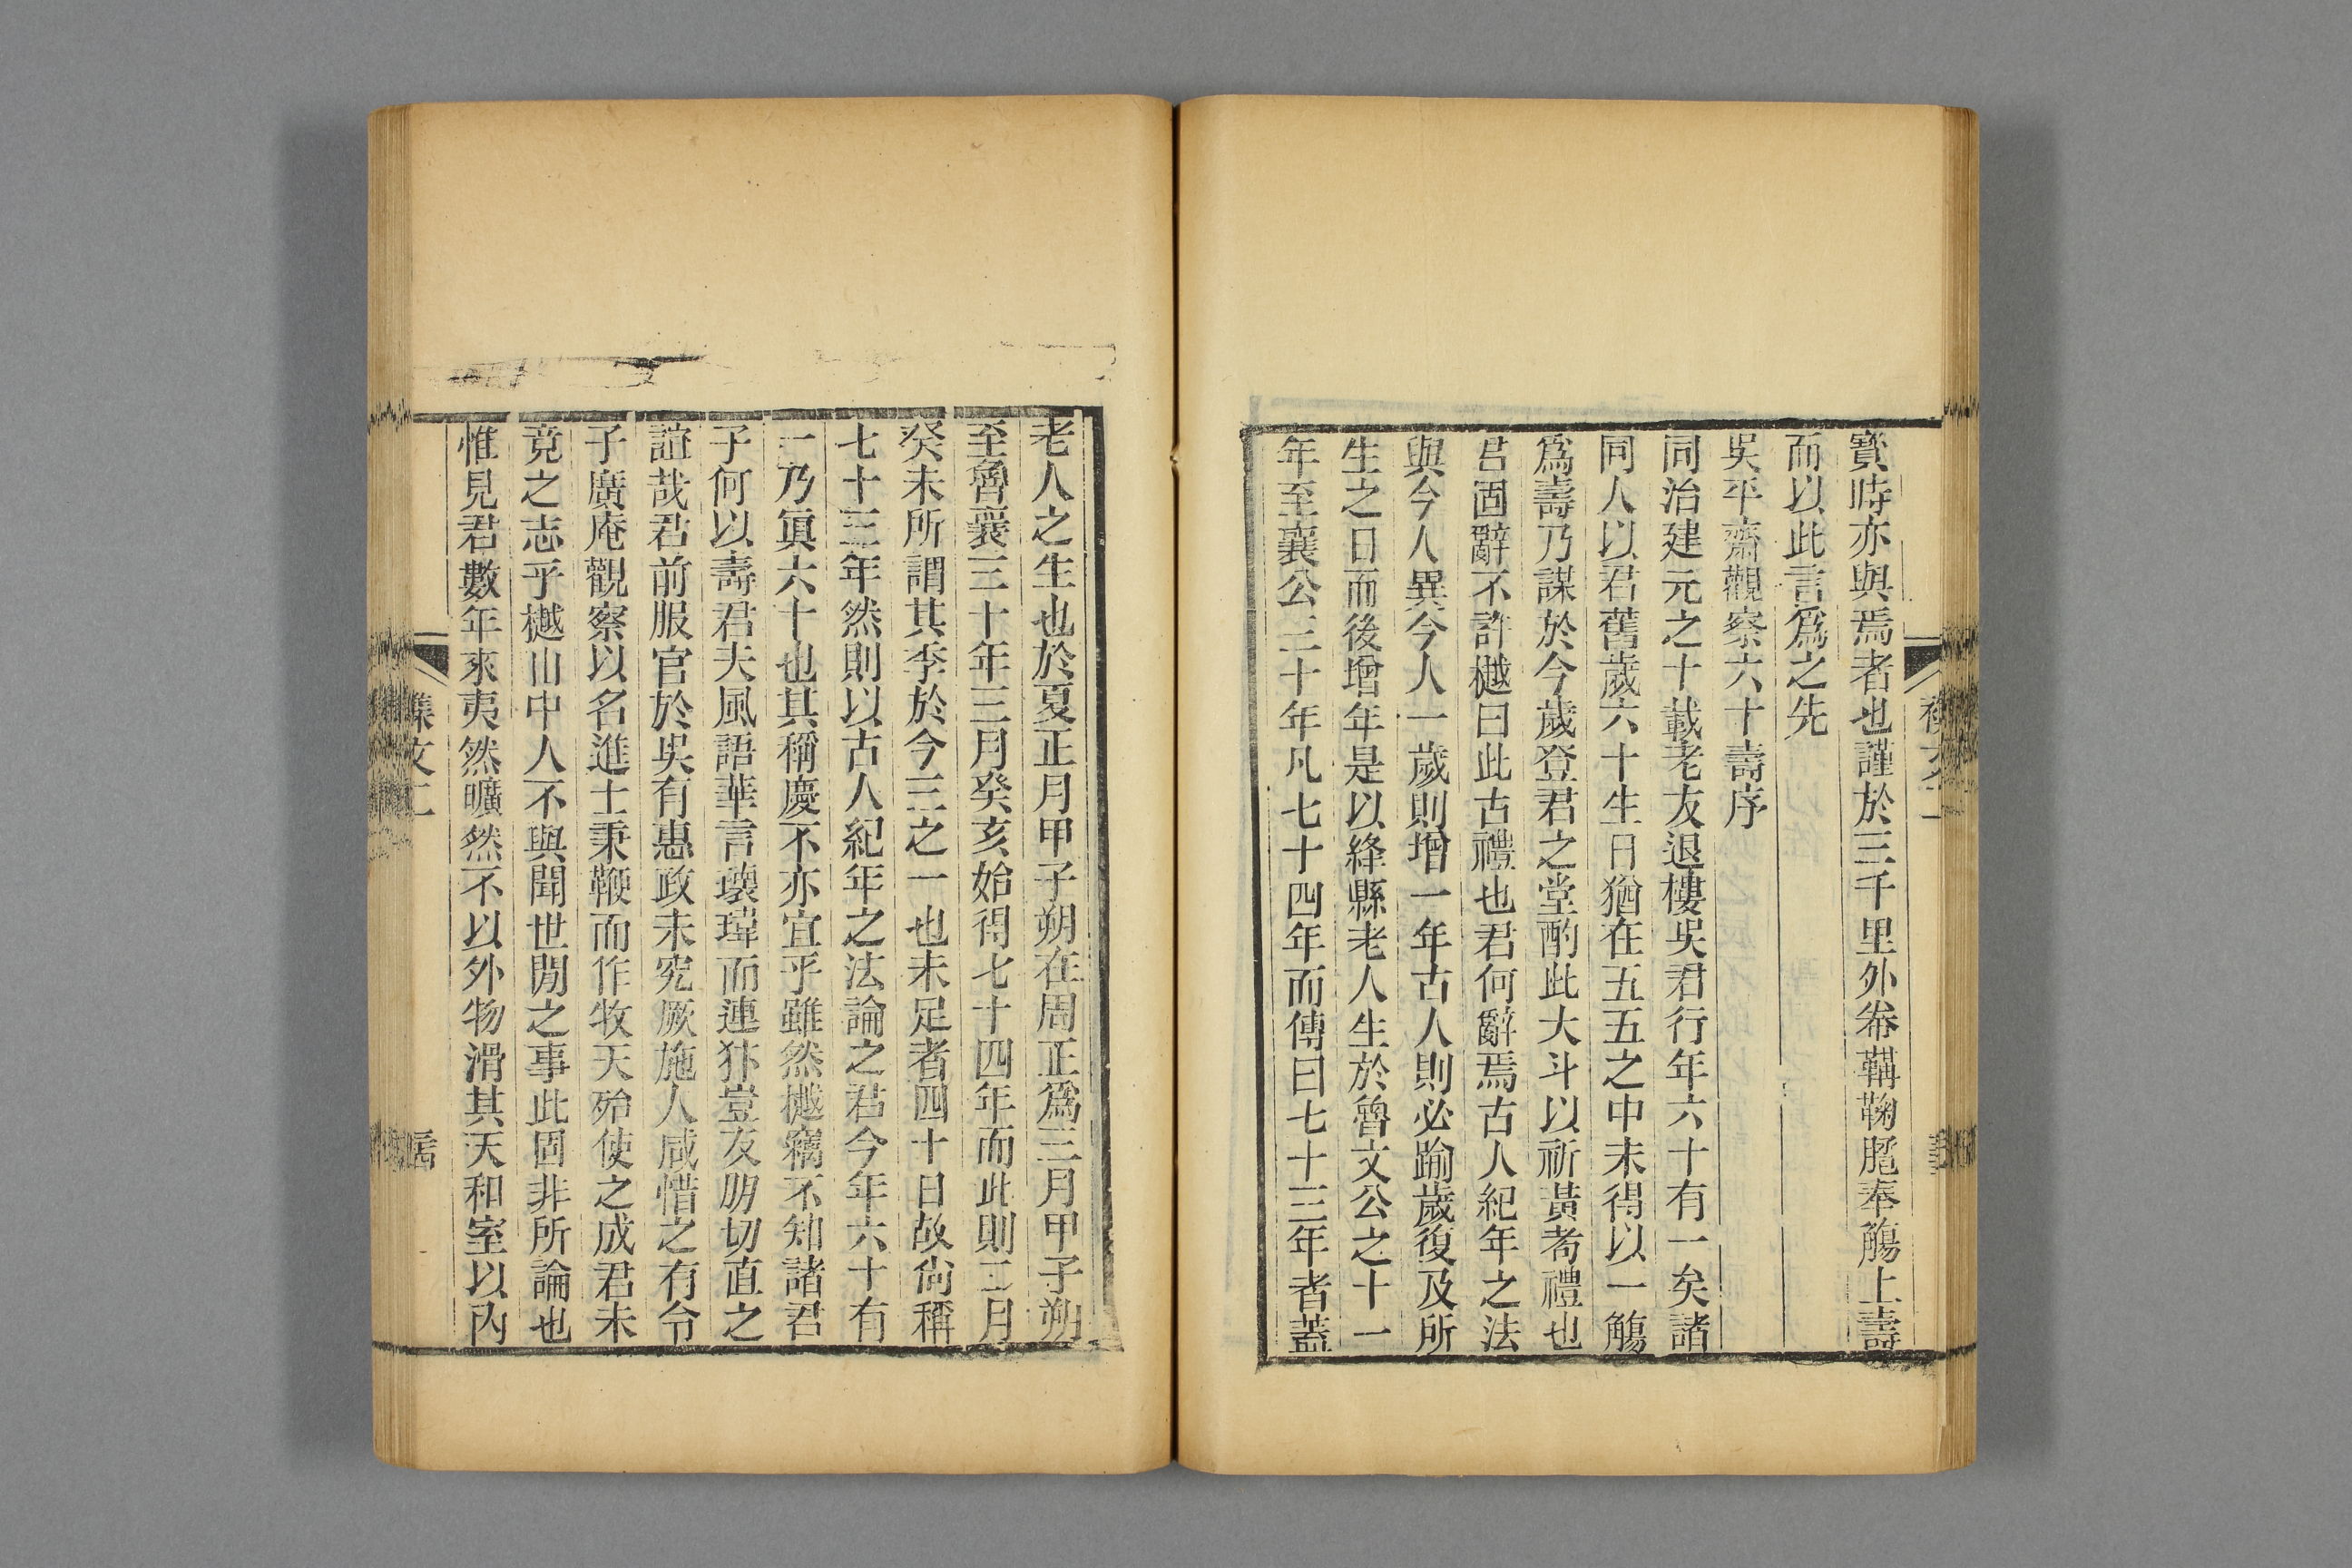 寶時亦與焉者也謹於三千里外鞶韝鞠䠆奉觴上壽
而以此言爲之先
吳平齋觀察六十壽序
同治建元之十載老友退樓吳君行年六十有一矣諸
同人以君舊歲六十生日猶在五五之中未得以一觴
爲壽乃謀於今歲登君之堂酌此大斗以祈黃耇禮也
君固辭不許樾曰此古禮也君何辭焉古人紀年之法
與今人異今人一歲則增一年古人則必踰歲復及所
生之日而後增年是以絳縣老人生於魯文公之十一
年至襄公三十年凡七十四年而傳曰七十三年者蓋
老人之生也於夏正月甲子朔在周正爲三月甲子朔
至魯襄三十年三月癸亥始得七十四年而此則二月
癸未所謂其季於今三之一也未足者四十日故尙稱
七十三年然則以古人紀年之法論之君今年六十有
一乃眞六十也其稱慶不亦宜乎雖然樾竊不知諸君
子何以壽君夫風語華言瓌瑋而連犿豈友朋切直之
誼哉君前服官於吳有惠政未究厥施人咸惜之有令
子廣庵觀察以名進士秉鞭而作牧天殆使之成君未
竟之志乎樾山中人不與聞世閒之事此固非所論也
惟見君數年來夷然曠然不以外物滑其天和室以內
襍文二